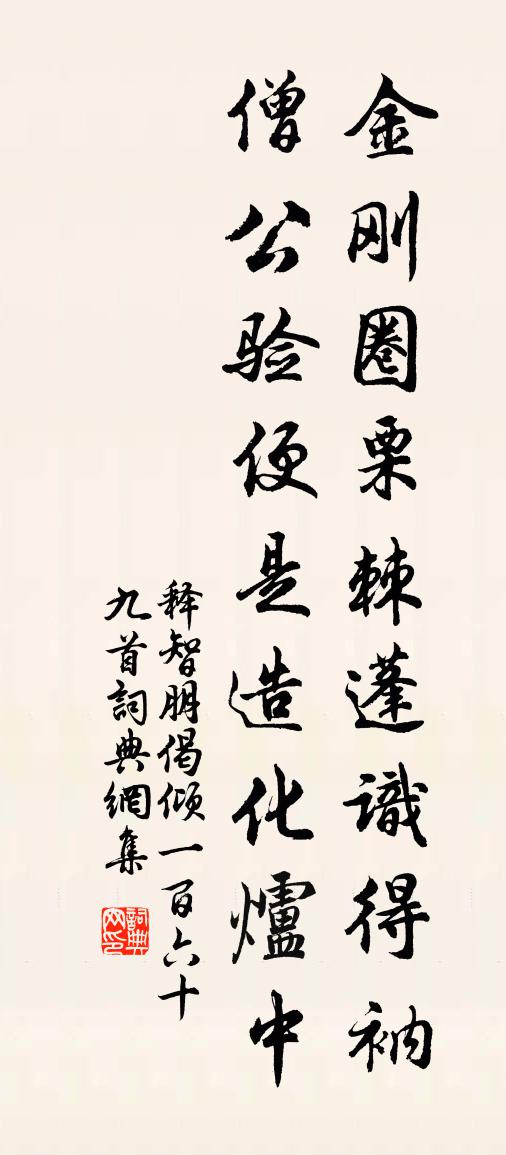 金刚圈栗棘蓬識得衲
僧公验便是造化爐中
释智朋偈倾一百六十
九首詞典網集
詞典
网印